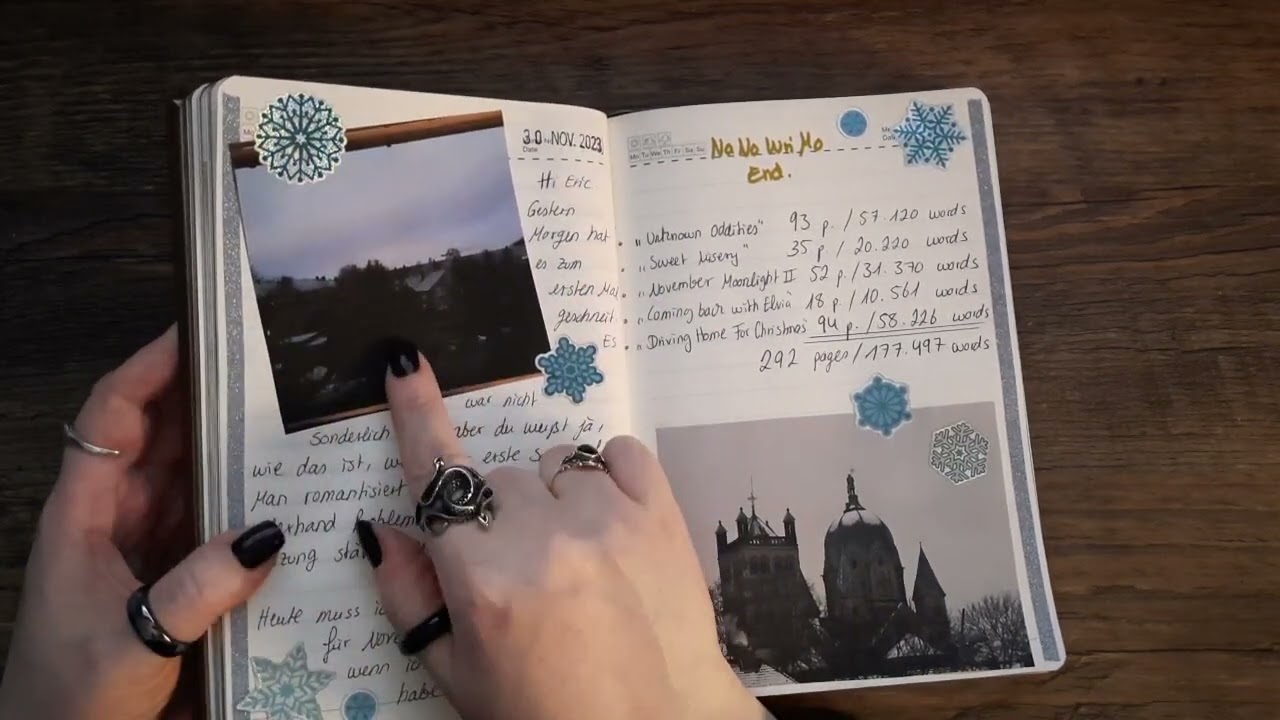 30. NOV. 2023
Date
Hi Eric
Gestern
Morgen hat
es zum
ersten Mal
geschneit.
Es
war nicht
sonderlich aber du weißt ja,
wie das ist, erste
Man romantisiert
Heute muss
für
wenn
habe
Mo Tu We Th Fr Sa Su
NaNoWriMo
End.
• „Unknown Oddities" 93 p. / 57.120 words
• „Sweet Misery" 35 p / 20.220 words
• „November Moonlight II 52 p. / 31.370 words
• „Coming back with Elvia 18 p. / 10.561 words
• „Driving Home For Christmas 94 p. / 58.226 words
292 pages / 177.497 words